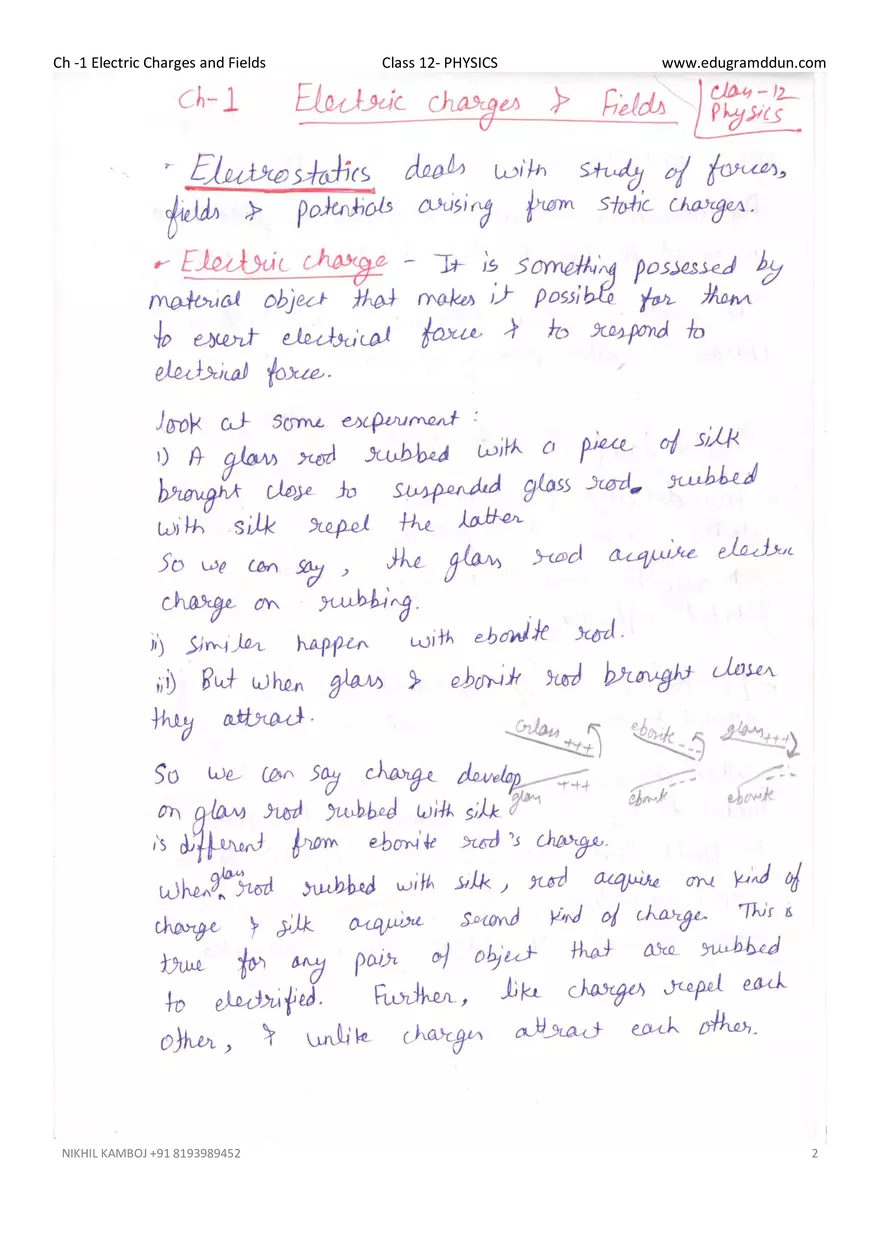 Ch -1 Electric Charges and Fields Class 12- PHYSICS www.edugramddun.com
Ch-1 Electric charges & Fields
Class-12
Physics
Electrostatics deals with study of forces,
fields & potentials arising from static charges.
Electric charge - It is something possessed by
material object that makes it possible for them
to exert electrical force & to respond to
electrical force.
look at some experiment :
i) A glass rod rubbed with a piece of silk
brought close to suspended glass rod. rubbed
with silk repel the latter
So we can say, the glass rod acquire electric
charge on rubbing.
ii) Similer happen with ebonite rod.
iii) But when glass & ebonite rod brought closer
they attract.
Glass +++ ebonite - - - glass +++
glass +++ ebonite - - - ebonite - - -
So we can say charge develop
on glass rod rubbed with silk
is different from ebonite rod's charge.
When glass rod rubbed with silk, rod acquire one kind of
charge & silk acquire second kind of charge. This is
true for any pair of object that are rubbed
to electrified. Further, like charges repel each
other, & unlike charges attract each other.
NIKHIL KAMBOJ +91 8193989452 2